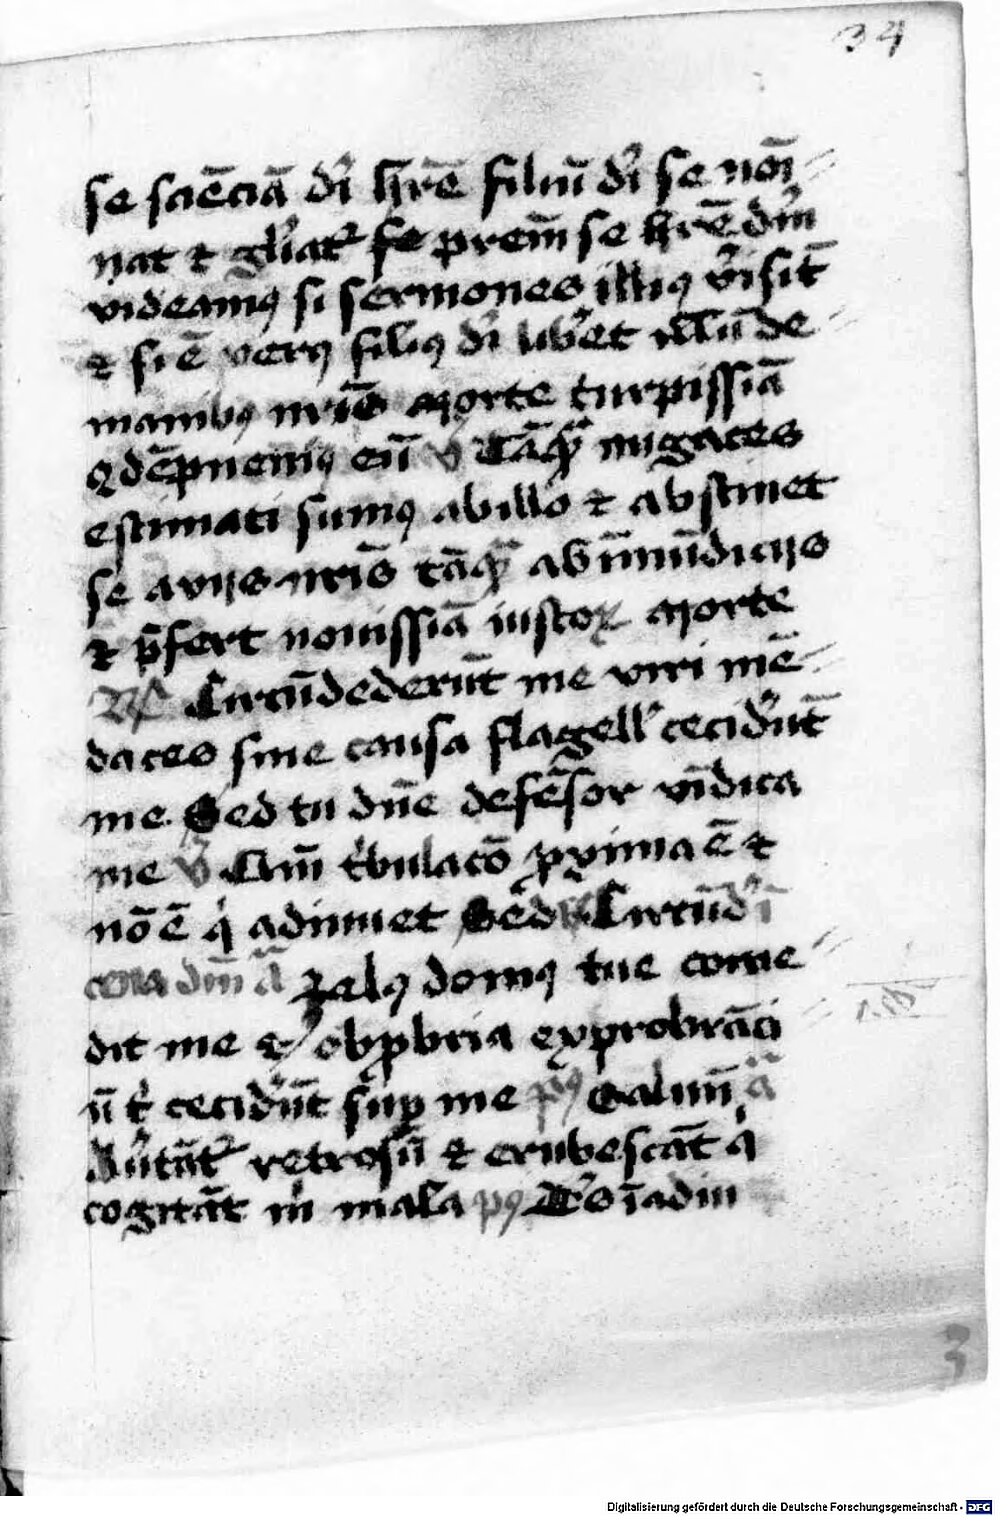 34
se sciēciā dī hr̄e filiū dī se nōi
nat ⁊ gl̄iat᷑ se prem̄ se hr̄e dm̄
videam᷒ si sermones illi᷒ v̄i sit̄
⁊ si ē ver᷒ fili᷒ dī lib̄et illū de
manib᷒ nr̄is morte turpissiā
9dēpnem᷒ eū v̄ Tāqͣ nugaces
estimati sum᷒ ab illo ⁊ abstinet
se a vijs nr̄is tāqͣ ab īmūdicijs
⁊ p̄fert nouissiā iustoꝝ morte
R̸ Circūdederūt me viri mē
daces sine causa flagell᷑ cecider̄ut
me Sed tu dn̄e defēsor vīdica
me v̄ Qm̄ t̄bulacō ꝓxima ē ⁊
nō ē qͥ adiuuet Sed Circūd̄
cena dm̄ ā Zel᷒ dom᷒ tue come
dit me ⁊ obꝓbria exprobrāci
ū t̄ cecider̄ut sup̄ me p᷒ Saluū ā
Au̓tāt᷑ retrosū ⁊ erubescāt qͥ
cogitāt m̄ mala p᷒ Ds ī adiu
3
Digitalisierung gefördert durch die Deutsche Forschungsgemeinschaft - DFG